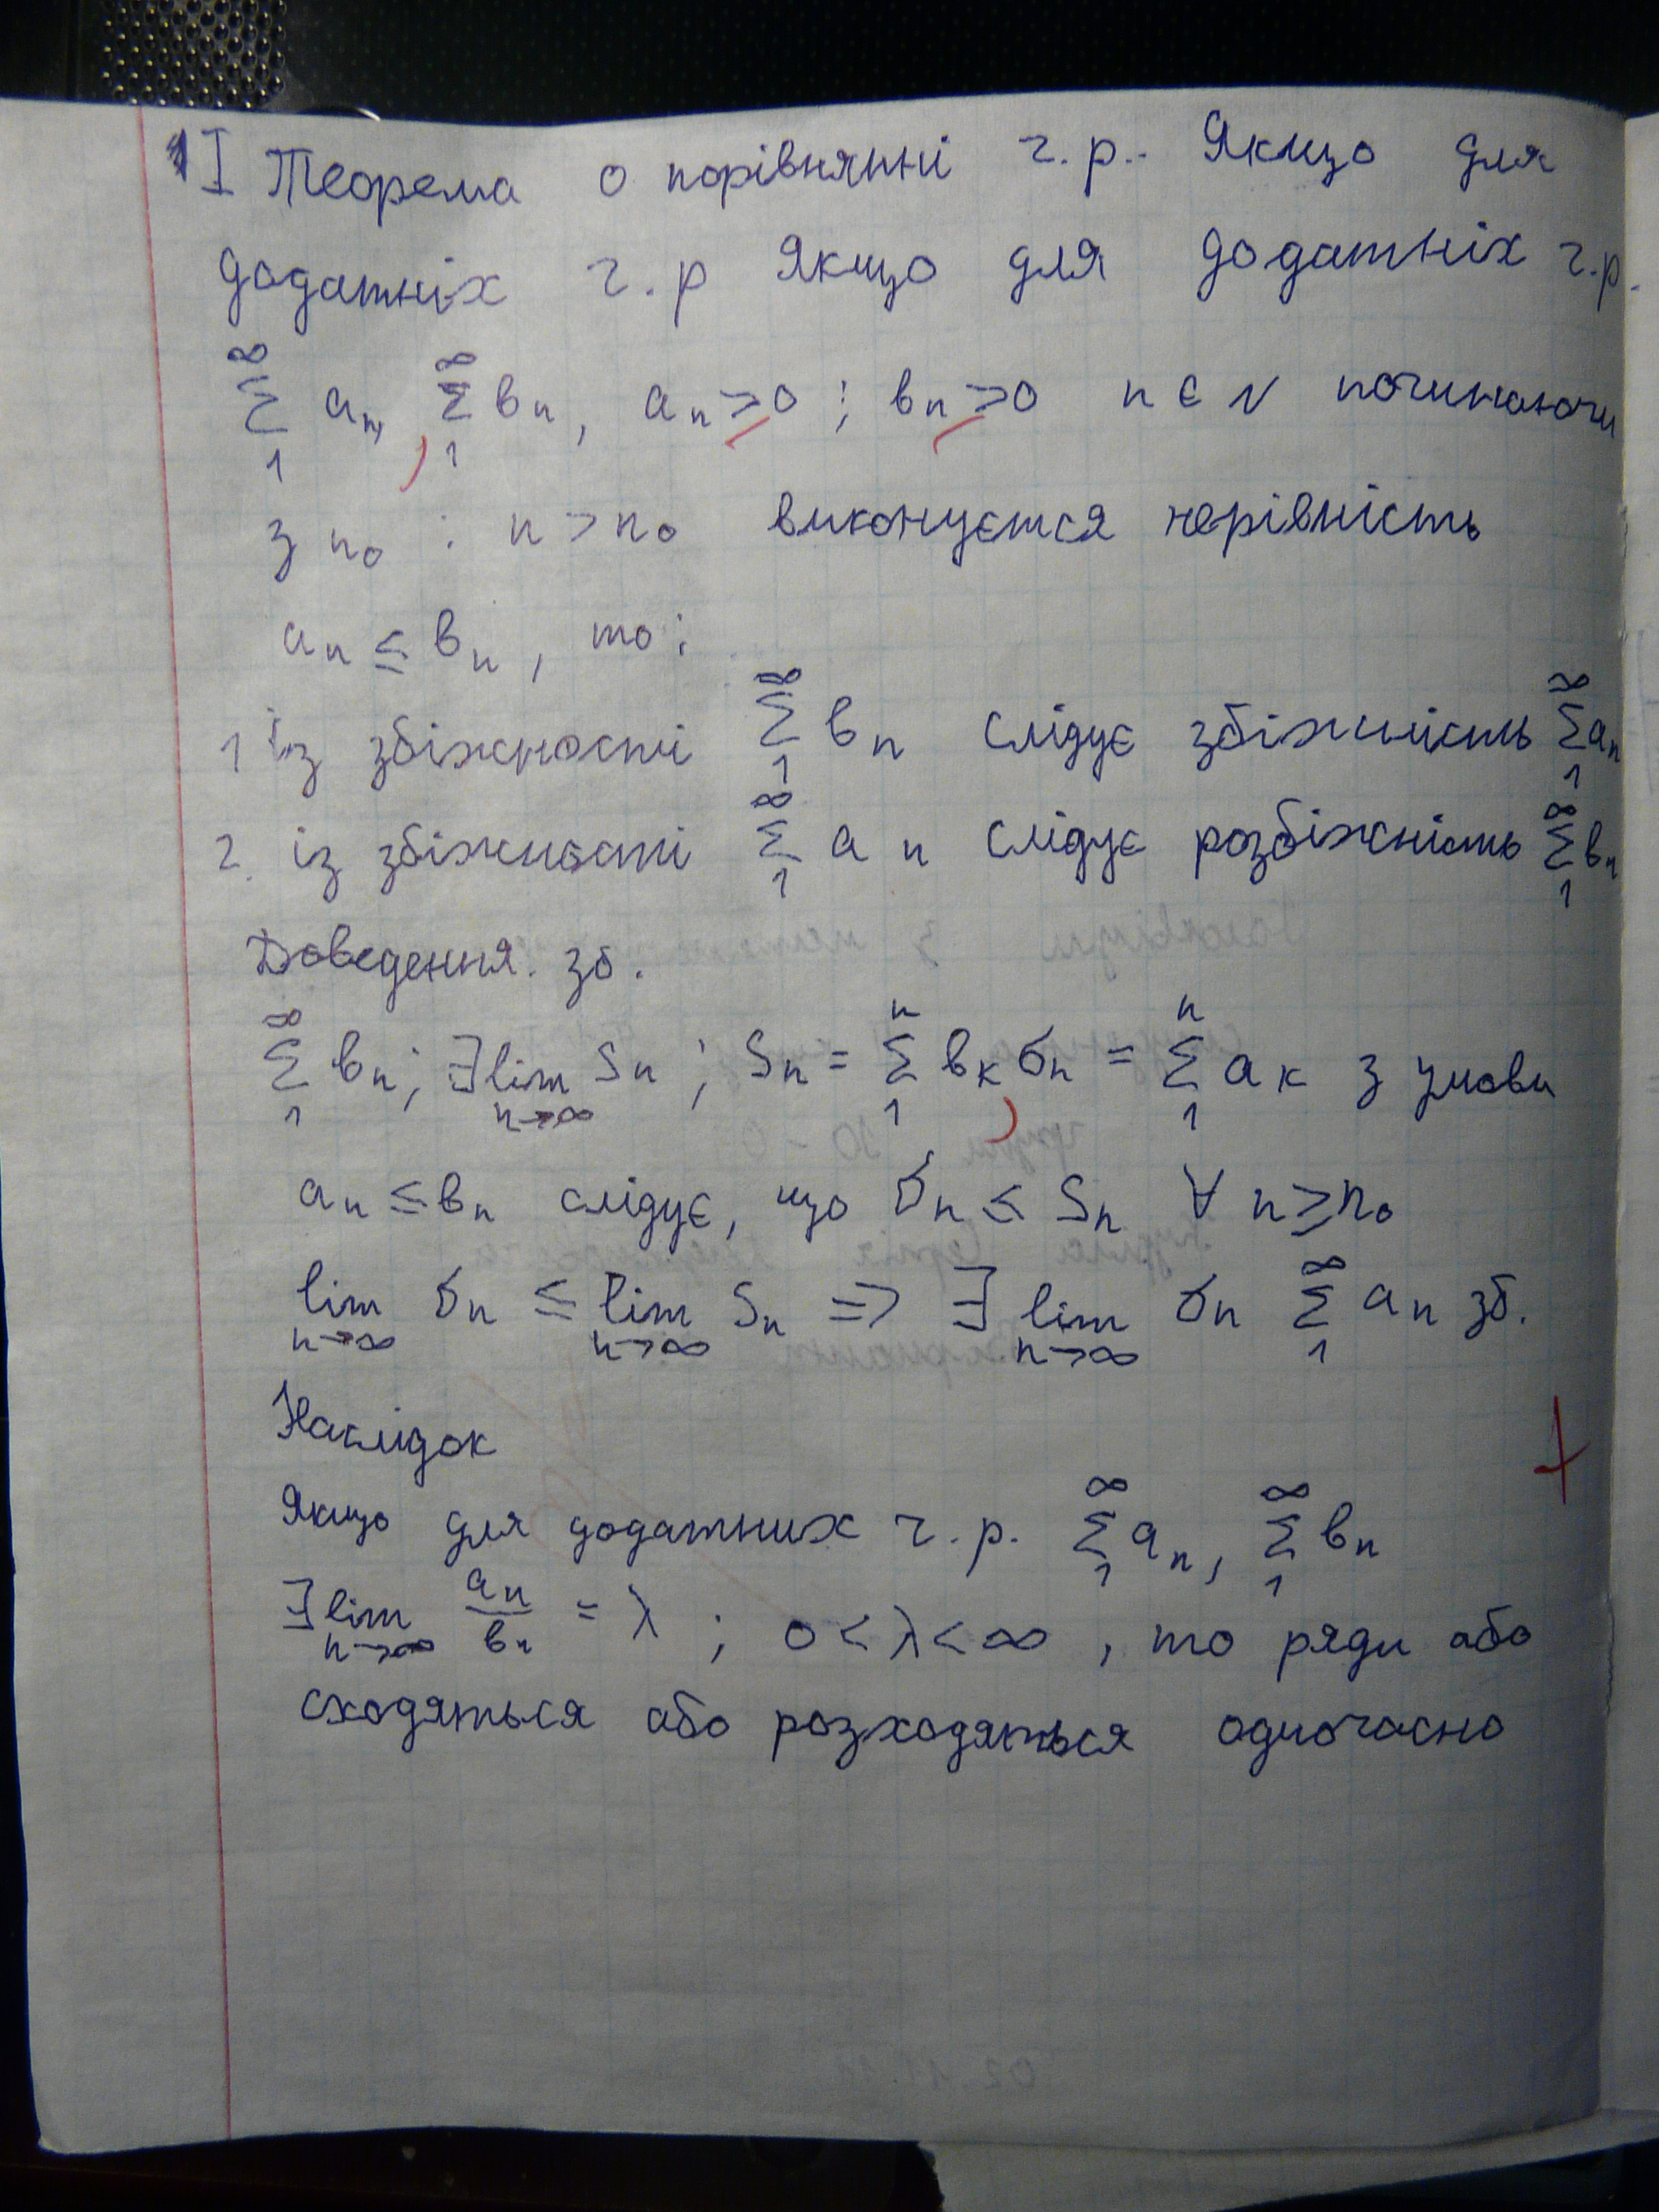 1 I Теорема о порівнянні ч.р.. Якщо для
додатніх ч.р Якщо для додатніх ч.р.
∞∑1 aₙ, ∞∑1 вₙ, aₙ ≥ 0 ; вₙ ≥ 0 n ∈ N починаючи
з n₀ : n > n₀ виконується нерівність
aₙ ≤ вₙ, то:
1 із збіжності ∞∑1 вₙ слідує збіжність ∞∑1 aₙ
2. із збіжності ∞∑1 aₙ слідує розбіжність ∞∑1 вₙ
Доведення. зб.
∞∑1 вₙ; ∃ lim n→∞ Sₙ ; Sₙ = n∑1 вₖ, σₙ = n∑1 aₖ з умови
aₙ ≤ вₙ слідує, що σₙ ≤ Sₙ ∀ n ≥ n₀
lim n→∞ σₙ ≤ lim n→∞ Sₙ => ∃ lim n→∞ σₙ ∞∑1 aₙ зб.
Наслідок
Якщо для додатних ч.р. ∞∑1 aₙ, ∞∑1 вₙ
∃ lim n→∞ aₙ/вₙ = λ ; 0 < λ < ∞, то ряди або
сходяться або розходяться одночасно
+